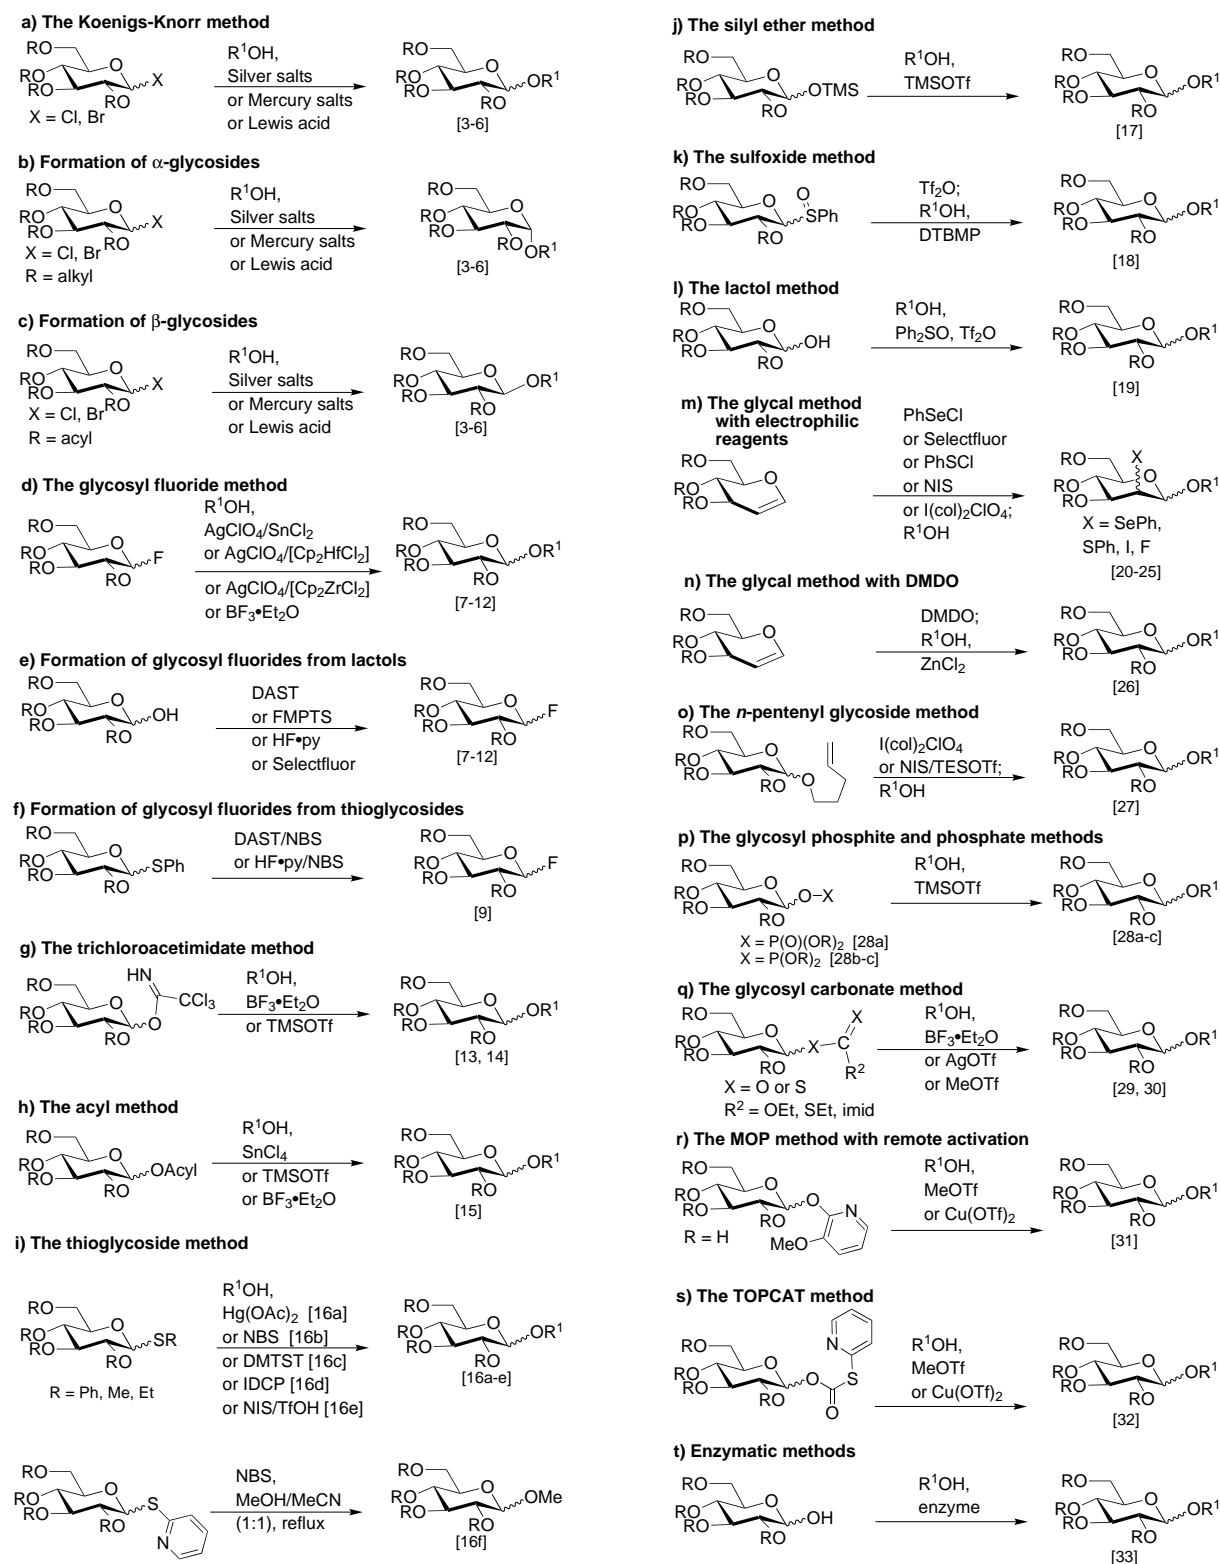 a) The Koenigs-Knorr method
RO
RO
RO
RO
O
X
X = Cl, Br
R¹OH,
Silver salts
or Mercury salts
or Lewis acid
RO
RO
RO
RO
O
OR¹
[3-6]
b) Formation of α-glycosides
RO
RO
RO
RO
O
X
X = Cl, Br
R = alkyl
R¹OH,
Silver salts
or Mercury salts
or Lewis acid
RO
RO
RO
RO
O
OR¹
[3-6]
c) Formation of β-glycosides
RO
RO
RO
RO
O
X
X = Cl, Br
R = acyl
R¹OH,
Silver salts
or Mercury salts
or Lewis acid
RO
RO
RO
RO
O
OR¹
[3-6]
d) The glycosyl fluoride method
RO
RO
RO
RO
O
F
R¹OH,
AgClO₄/SnCl₂
or AgClO₄/[Cp₂HfCl₂]
or AgClO₄/[Cp₂ZrCl₂]
or BF₃•Et₂O
RO
RO
RO
RO
O
OR¹
[7-12]
e) Formation of glycosyl fluorides from lactols
RO
RO
RO
RO
O
OH
DAST
or FMPTS
or HF•py
or Selectfluor
RO
RO
RO
RO
O
F
[7-12]
f) Formation of glycosyl fluorides from thioglycosides
RO
RO
RO
RO
O
SPh
DAST/NBS
or HF•py/NBS
RO
RO
RO
RO
O
F
[9]
g) The trichloroacetimidate method
RO
RO
RO
RO
O
O
HN
CCl₃
R¹OH,
BF₃•Et₂O
or TMSOTf
RO
RO
RO
RO
O
OR¹
[13, 14]
h) The acyl method
RO
RO
RO
RO
O
OAcyl
R¹OH,
SnCl₄
or TMSOTf
or BF₃•Et₂O
RO
RO
RO
RO
O
OR¹
[15]
i) The thioglycoside method
RO
RO
RO
RO
O
SR
R = Ph, Me, Et
R¹OH,
Hg(OAc)₂ [16a]
or NBS [16b]
or DMTST [16c]
or IDCP [16d]
or NIS/TfOH [16e]
RO
RO
RO
RO
O
OR¹
[16a-e]
RO
RO
RO
RO
O
S
N
NBS,
MeOH/MeCN
(1:1), reflux
RO
RO
RO
RO
O
OMe
[16f]
j) The silyl ether method
RO
RO
RO
RO
O
OTMS
R¹OH,
TMSOTf
RO
RO
RO
RO
O
OR¹
[17]
k) The sulfoxide method
RO
RO
RO
RO
O
O
SPh
Tf₂O;
R¹OH,
DTBMP
RO
RO
RO
RO
O
OR¹
[18]
l) The lactol method
RO
RO
RO
RO
O
OH
R¹OH,
Ph₂SO, Tf₂O
RO
RO
RO
RO
O
OR¹
[19]
m) The glycal method
with electrophilic
reagents
RO
RO
RO
O
PhSeCl
or Selectfluor
or PhSCl
or NIS
or I(col)₂ClO₄;
R¹OH
RO
RO
RO
X
O
OR¹
X = SePh,
SPh, I, F
[20-25]
n) The glycal method with DMDO
RO
RO
RO
O
DMDO;
R¹OH,
ZnCl₂
RO
RO
RO
RO
O
OR¹
[26]
o) The n-pentenyl glycoside method
RO
RO
RO
RO
O
O
I(col)₂ClO₄
or NIS/TESOTf;
R¹OH
RO
RO
RO
RO
O
OR¹
[27]
p) The glycosyl phosphite and phosphate methods
RO
RO
RO
RO
O
O–X
X = P(O)(OR)₂ [28a]
X = P(OR)₂ [28b-c]
R¹OH,
TMSOTf
RO
RO
RO
RO
O
OR¹
[28a-c]
q) The glycosyl carbonate method
RO
RO
RO
RO
O
X
C
X
R²
X = O or S
R² = OEt, SEt, imid
R¹OH,
BF₃•Et₂O
or AgOTf
or MeOTf
RO
RO
RO
RO
O
OR¹
[29, 30]
r) The MOP method with remote activation
RO
RO
RO
RO
O
O
N
MeO
R = H
R¹OH,
MeOTf
or Cu(OTf)₂
RO
RO
RO
RO
O
OR¹
[31]
s) The TOPCAT method
RO
RO
RO
RO
O
O
O
S
N
R¹OH,
MeOTf
or Cu(OTf)₂
RO
RO
RO
RO
O
OR¹
[32]
t) Enzymatic methods
RO
RO
RO
RO
O
OH
R¹OH,
enzyme
RO
RO
RO
RO
O
OR¹
[33]